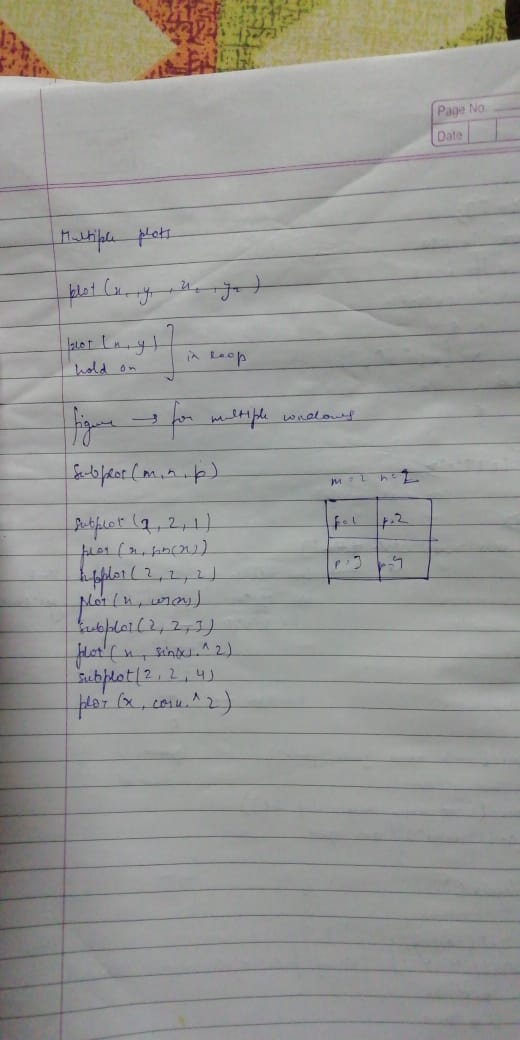 Page No.
Date
Multiple plots
plot (x₁, y₁, x₂, y₂)
plot (x, y)
hold on
in loop
figure → for multiple windows
Subplot (m, n, p)
m = 2 n = 2
subplot (2, 2, 1)
p=1 p=2
plot (x, sin(x))
subplot (2, 2, 2)
p=3 p=4
plot (x, cos(x))
subplot (2, 2, 3)
plot (x, sin(x).^2)
subplot (2, 2, 4)
plot (x, cosx.^2)